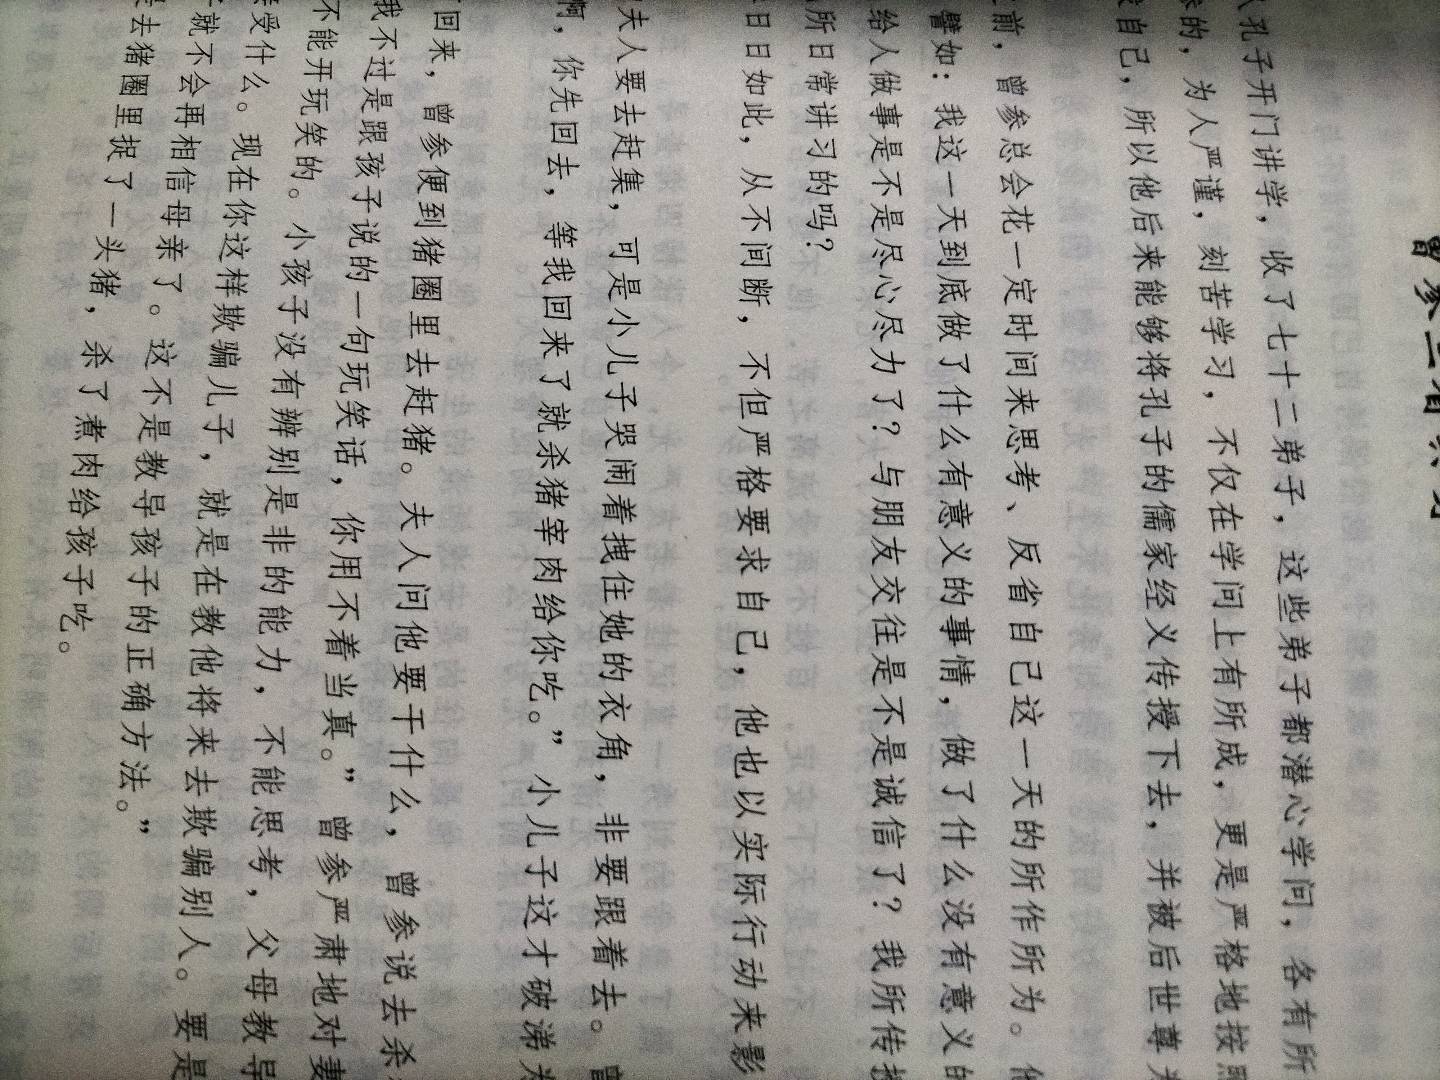 曾参三省
孔子开门讲学，收了七十二弟子，这些弟子都潜心学问，各有所
的，为人严谨，刻苦学习，不仅在学问上有所成，更是严格地按照
自己，所以他后来能够将孔子的儒家经义传授下去，并被后世尊为
前，曾参总会花一定时间来思考、反省自己这一天的所作所为。他
譬如：我这一天到底做了什么有意义的事情，做了什么没有意义的
给人做事是不是尽心尽力了？与朋友交往是不是诚信了？我所传授
所日常讲习的吗？
日日如此，从不间断，不但严格要求自己，他也以实际行动来影
夫人要去赶集，可是小儿子哭闹着拽住她的衣角，非要跟着去。曾
啊，你先回去，等我回来了就杀猪宰肉给你吃。”小儿子这才破涕为
回来，曾参便到猪圈里去赶猪。夫人问他要干什么，曾参说去杀
我不过是跟孩子说的一句玩笑话，你用不着当真。”曾参严肃地对妻
不能开玩笑的。小孩子没有辨别是非的能力，不能思考，父母教导
受什么。现在你这样欺骗儿子，就是在教他将来去欺骗别人。要是
就不会再相信母亲了。这不是教导孩子的正确方法。”
去猪圈里捉了一头猪，杀了煮肉给孩子吃。